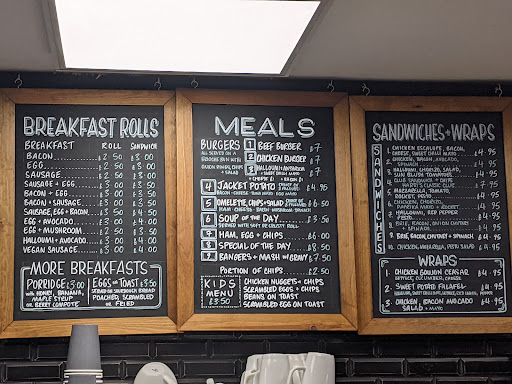 BREAKFAST ROLLS
BREAKFAST ROLL SANDWICH
BACON £2 50 £3 00
EGG £2 50 £3 00
SAUSAGE £2 50 £3 00
SAUSAGE + EGG £3 00 £3 50
BACON + EGG £3 00 £3 50
BACON + SAUSAGE £3 00 £3 50
SAUSAGE, EGG + BACON £3 50 £4 50
EGG + AVOCADO £3 00 £4 00
EGG + MUSHROOM £2 50 £3 50
HALLOUMI + AVOCADO £3 00 £4 00
VEGAN SAUSAGE £3 00 £4 00
MORE BREAKFASTS
PORRIDGE £3.00
WITH HONEY, BANANA,
MAPLE SYRUP
OR BERRY COMPOTE
EGGS ON TOAST £3 50
SERVED ON SOURDOUGH BREAD
POACHED, SCRAMBLED
OR FRIED
MEALS
BURGERS
ALL SERVED ON A
BRIOCHE BUN WITH
ONION RINGS, CHIPS
+ SALAD
1 BEEF BURGER £7
2 CHICKEN BURGER £7
3 HALLOUMI + £7
4 JACKET POTATO £4.95
5 OMELETTE, CHIPS + SALAD £6.50
6 SOUP OF THE DAY £3.50
SERVED WITH
7 HAM, EGG + CHIPS £6.00
8 SPECIAL OF THE DAY £8.50
9 BANGERS + MASH W/ GRAVY £7.50
PORTION OF CHIPS £2.50
KIDS
MENU
£3 50
CHICKEN NUGGETS + CHIPS
SCRAMBLED EGGS + CHIPS
BEANS ON TOAST
SCRAMBLED EGG ON TOAST
SANDWICHES + WRAPS
SANDWICHES
1. CHICKEN ESCALOPE, BACON,
CHEESE, SWEET CHILLI MAYO £4.95
2. CHICKEN, BACON, AVOCADO,
SPINACH £4.95
3. HALLOUMI, CHORIZO, SALAD,
SUN DRIED TOMATOES £4.95
MOZZARELLA, TOMATO,
ROCKET, PESTO £4.95
CHICKEN, CHORIZO, £4.95
HALLOUMI, RED PEPPER £4.95
8. BRIE, BACON, ONION CHUTNEY
+ SPINACH £4.95
CHICKEN, MOZZARELLA, PESTO SALAD £4.95
WRAPS
1. CHICKEN GOUJON CEASAR £4.95
LETTUCE, CUCUMBER, CHEESE
2. SWEET POTATO FALAFEL £4.95
3. CHICKEN, BACON AVOCADO
SALAD + MAYO £4.95